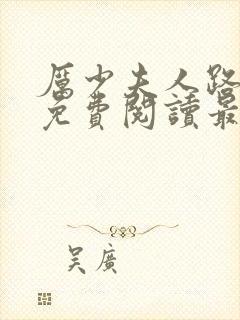 厲少夫人路
免費閱讀最
吳廣